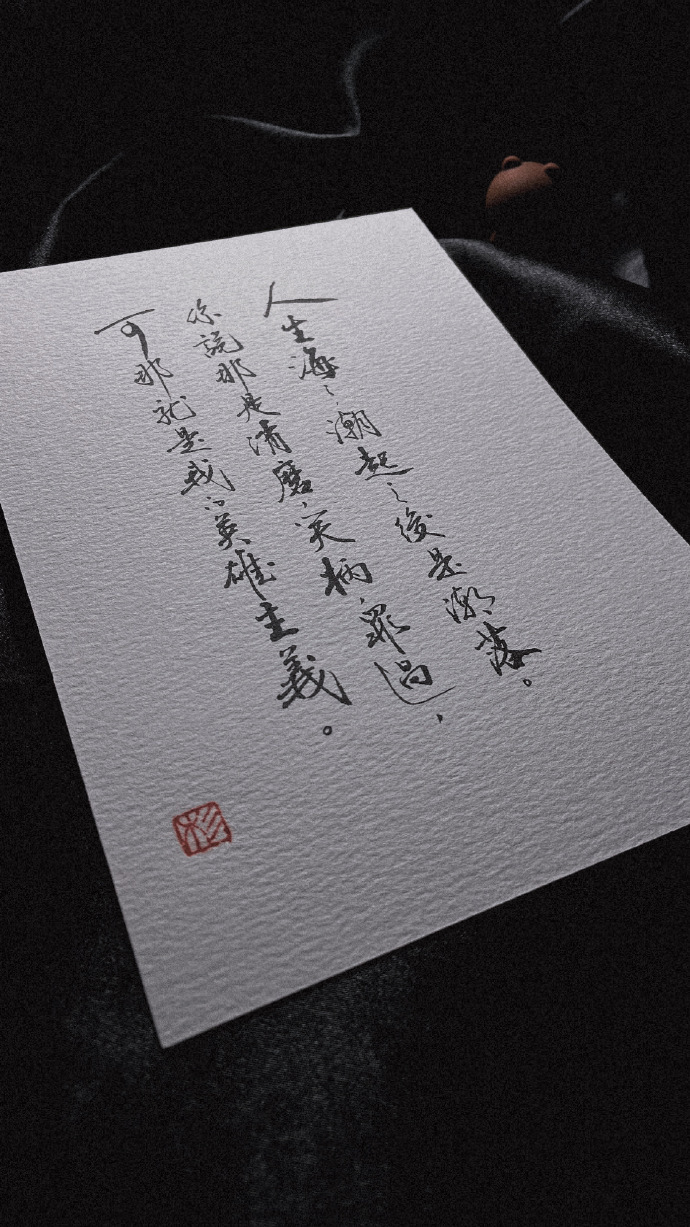 人生海海，潮起之後是潮落。
你說那是消磨，笑柄，罪過，
可那就是我的英雄主義。
杉